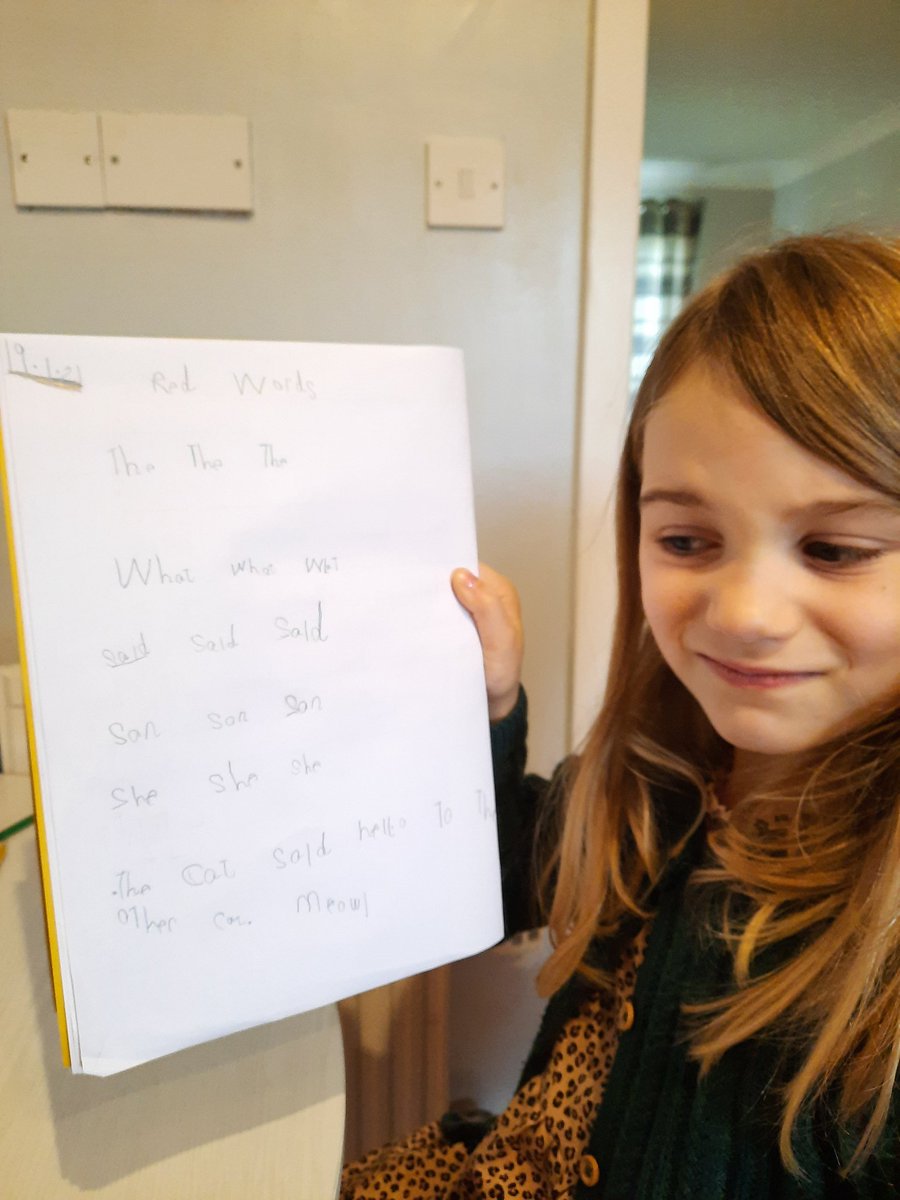 19.1.21
Red Words
The The The
What What What
said said said
san san san
she she she
.The Cat said hello To Th
oTher Meow!